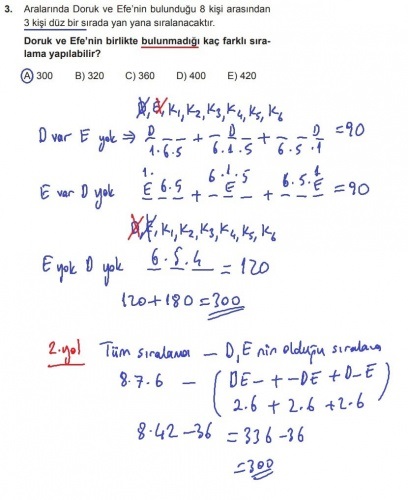 3. Aralarında Doruk ve Efe'nin bulunduğu 8 kişi arasından
3 kişi düz bir sırada yan yana sıralanacaktır.
Doruk ve Efe'nin birlikte bulunmadığı kaç farklı sıra-
lama yapılabilir?
A) 300 B) 320 C) 360 D) 400 E) 420
D, E, K1, K2, K3, K4, K5, K6
D var E yok ⇒ D _ _ + _ D _ + _ _ D = 90
1.6.5 6.1.5 6.5.1
1. 6.5 6.1.5 6.5.1
E var D yok E _ _ + _ E _ + _ _ E = 90
D, E, K1, K2, K3, K4, K5, K6
E yok D yok 6.5.4 = 120
120+180=300
2.yol Tüm sıralama — D,E nin olduğu sıralama
8.7.6 — (DE- + -DE + D-E)
2.6 + 2.6 + 2.6
8.42-36 = 336-36
=300